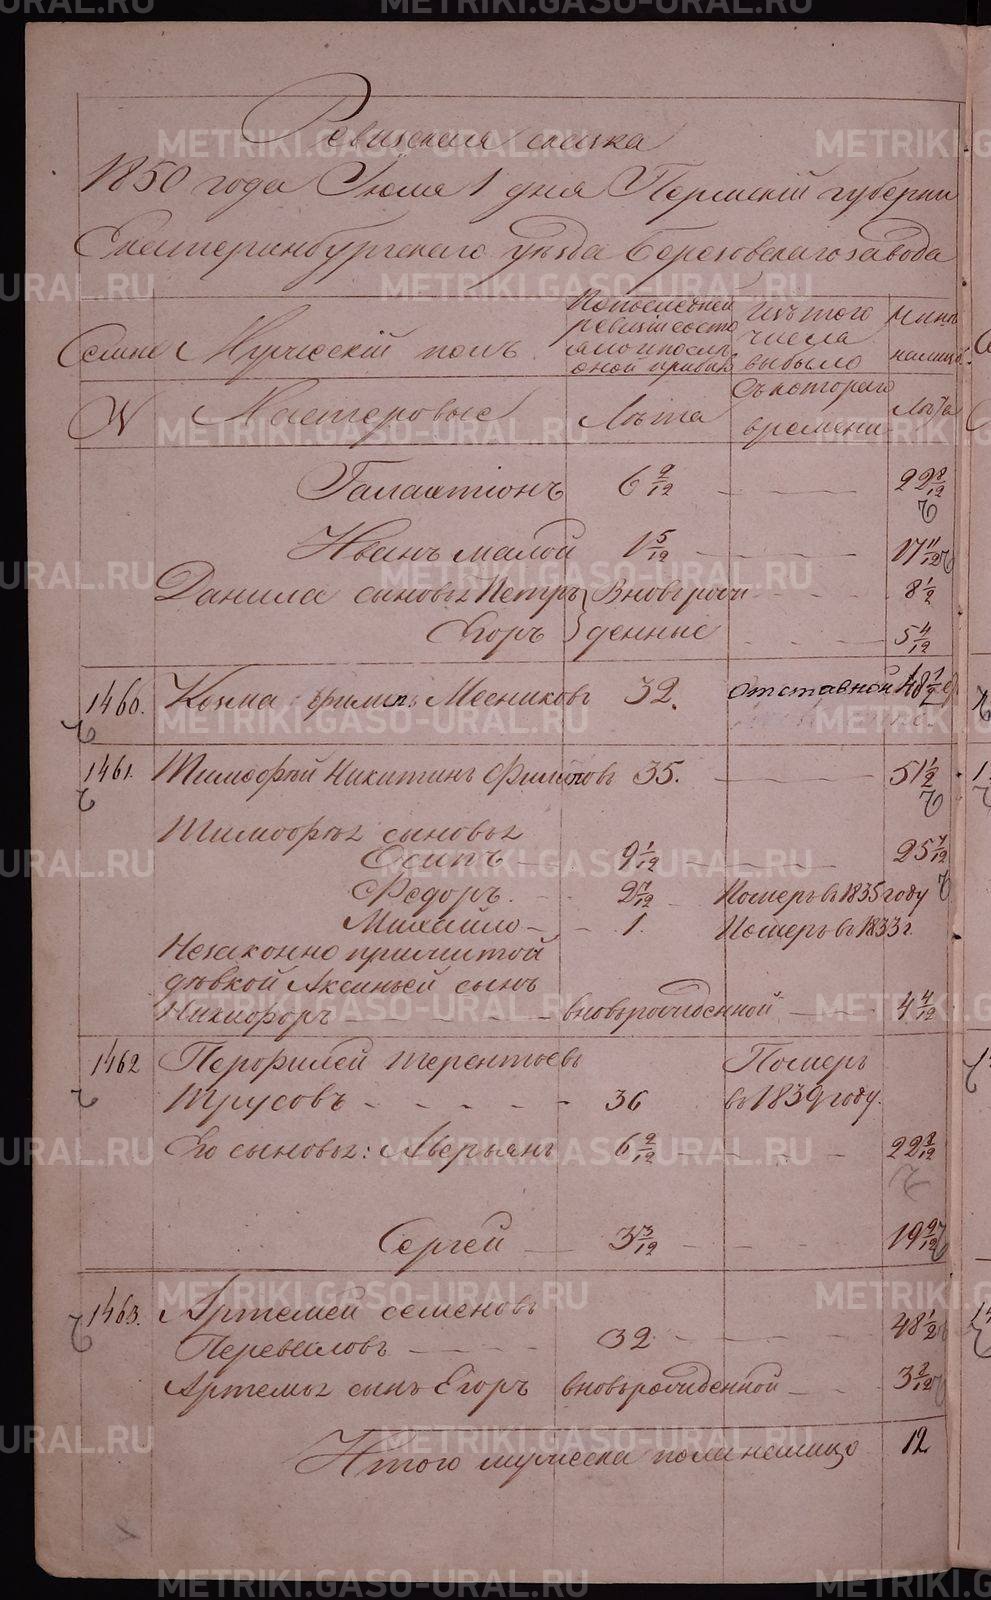 Ревизская сказка
1850 года Июля 1 дня Пермской губернии
Екатеринбургскаго уезда Березовскаго завода
Семьи Мужескій полъ По последней ревизіи состояло и после оной прибыло Изъ того числа выбыло Ныне налицо
N Мастеровые Лѣта Съ котораго времени Лѣта
Галактіонъ 6 9/12 22 8/12
Иванъ малой 1 5/12 17 11/12
Данила сыновья Петръ Вновьрож 8 1/2
Егоръ денные 5 4/12
1460. Козма Месниковъ 32. отставной 48 1/2
1461. Тимофѣй Никитинъ Филатовъ 35. 51 1/2
Тимофѣя сыновья
Есипъ 9 1/12 25 7/12
Федоръ 2 7/12 Померъ въ 1835 году
Михайло 1 Померъ въ 1833 г
Незаконно прижитой
дѣвкой Аксиньей сынъ
Никифоръ вновьрожденной 4 4/12
1462 Перфилей Терентьевъ Померъ
Трусовъ 36 въ 1839 году.
Его сыновья: Аверьянъ 6 9/12 22 8/12
Сергей 3 3/12 19 9/12
1463. Артемей семеновъ
Переваловъ 32 48 1/2
Артемья сынъ Егоръ вновьрожденной 3 2/12
Итого мужеска пола налицо 12
METRIKI.GASO-URAL.RU